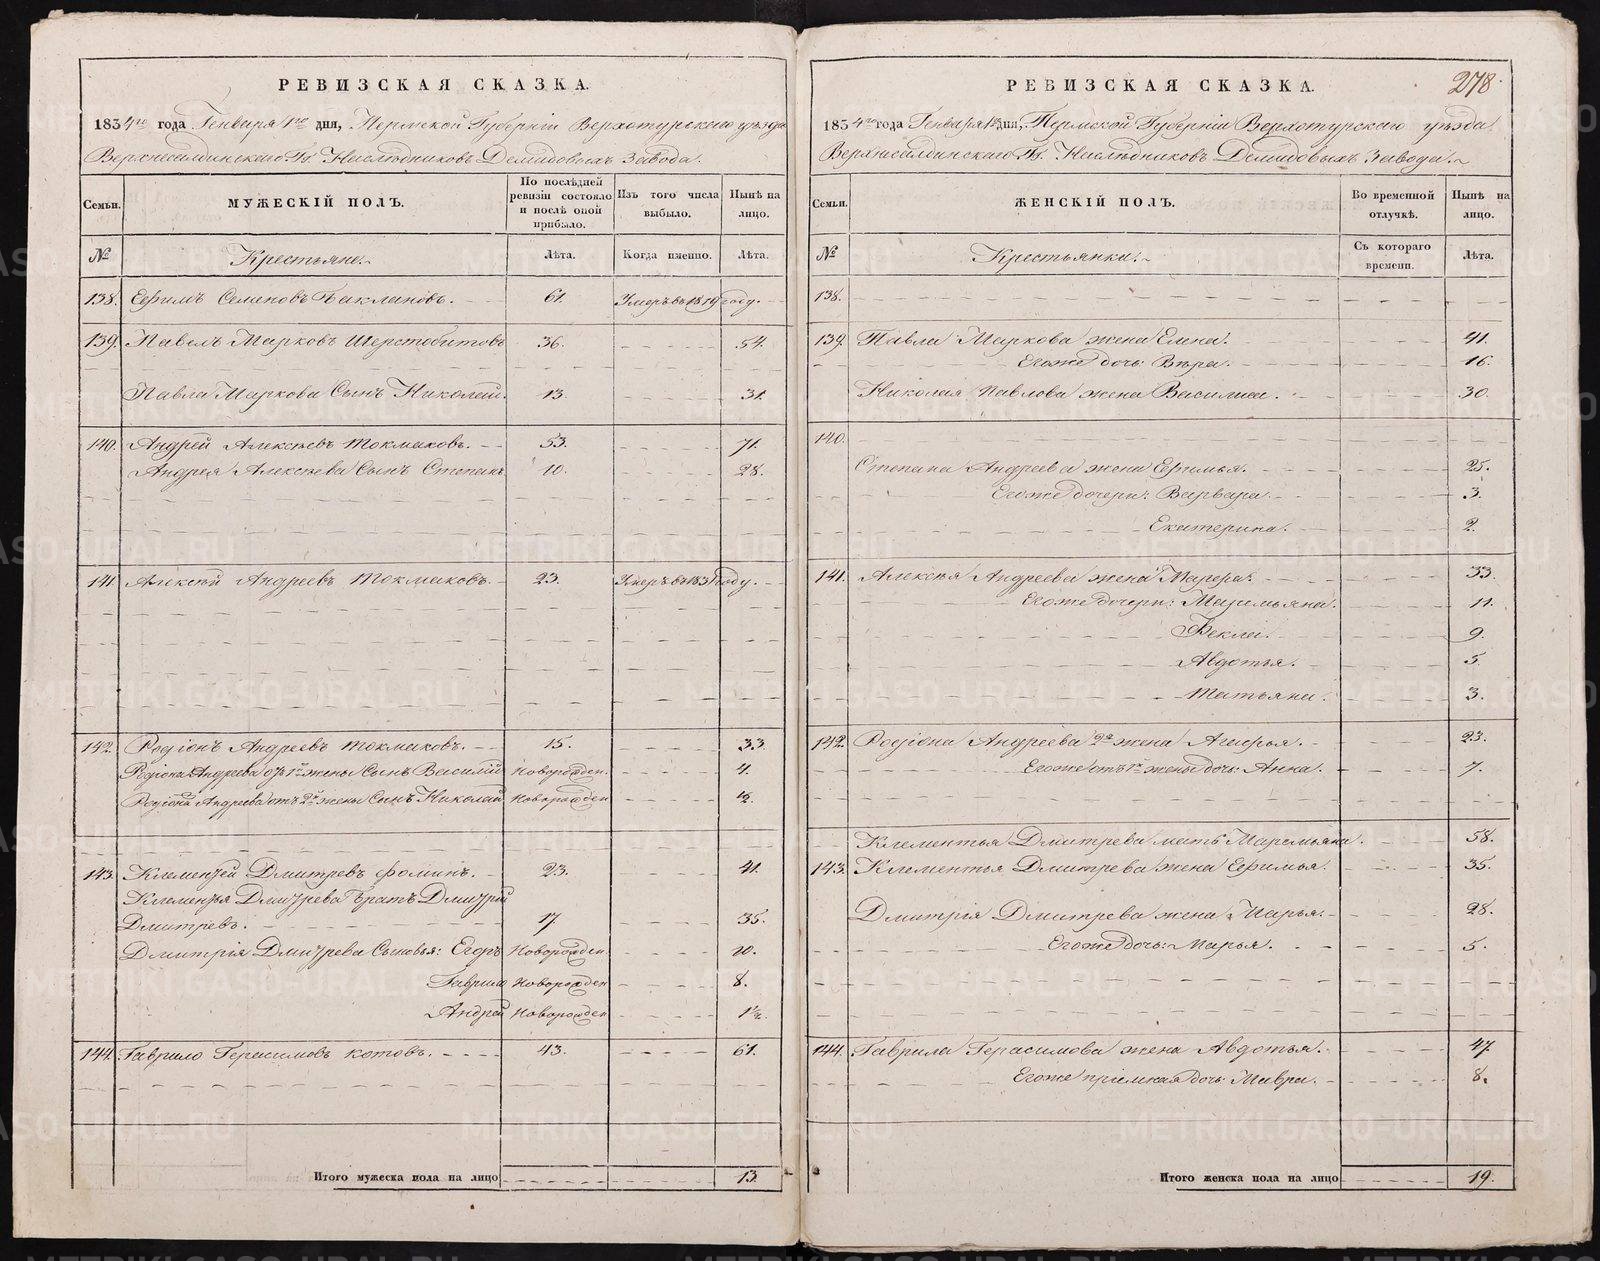 РЕВИЗСКАЯ СКАЗКА.
1834го года Генваря 1го дня, Пермской Губернiи Верхотурскаго уѣзда
Верхнесалдинскаго Гг. Наслѣдниковъ Демидовыхъ Завода.
Семьи.
МУЖЕСКIЙ ПОЛЪ.
По послѣдней ревизiи состояло и послѣ оной прибыло.
Изъ того числа выбыло.
Нынѣ на лицо.
№
Крестьяне.
Лѣта.
Когда именно.
Лѣта.
138. Ефимъ Семеновъ Баклановъ. 61. Умеръ въ 1819 году.
139. Павелъ Марковъ Шерстобитовъ 36. 54.
Павла Маркова Сынъ Николай. 13. 31.
140. Андрей Алексѣевъ Токмаковъ. 53. 71.
Андрея Алексѣева Сынъ Степанъ 10. 28.
141. Алексѣй Андреевъ Токмаковъ. 23. Умеръ въ 1831 году.
142. Родiонъ Андреевъ Токмаковъ. 15. 33.
Родiона Андреева отъ 1й жены Сынъ Василiй Новорожден. 4.
Родiона Андреева отъ 2й жены Сынъ Николай Новорожден ½.
143. Клементей Дмитревъ Фоминъ. 23. 41.
Клементья Дмитрева Братъ Дмитрiй
Дмитревъ. 17 35.
Дмитрiя Дмитрева Сыновья: Егоръ Новорожден. 10.
Гаврило Новорожден 8.
Андрей Новорожден 1½.
144. Гаврило Герасимовъ Котовъ. 43. 61.
Итого мужеска пола на лицо 13.
278.
РЕВИЗСКАЯ СКАЗКА.
1834го года Генваря 1го дня, Пермской Губернiи Верхотурскаго уѣзда
Верхнесалдинскаго Гг. Наслѣдниковъ Демидовыхъ Завода.
Семьи.
ЖЕНСКIЙ ПОЛЪ.
Во временной отлучкѣ.
Нынѣ на лицо.
№
Крестьянки.
Съ котораго времени.
Лѣта.
138.
139. Павла Маркова жена Елена. 41.
Егоже дочь: Вѣра. 16.
Николая Павлова жена Василиса. 30.
140.
Степана Андреева жена Ефимья. 25.
Егоже дочери: Варвара. 3.
Екатерина. 2.
141. Алексѣя Андреева жена Марфа. 33.
Егоже дочери: Маремьяна. 11.
Фекла. 9.
Авдотья. 5.
Татьяна. 3.
142. Родiона Андреева 2я жена Агафья. 23.
Егоже отъ 1й жены дочь: Анна. 7.
Клементья Дмитрева мать Маремьяна. 58.
143. Клементья Дмитрева жена Ефимья. 35.
Дмитрiя Дмитрева жена Марья. 28.
Егоже дочь: Марья. 5.
144. Гаврила Герасимова жена Авдотья. 47
Егоже прiемная дочь Мавра. 8.
Итого женска пола на лицо 19.
METRIKI.GASO-URAL.RU